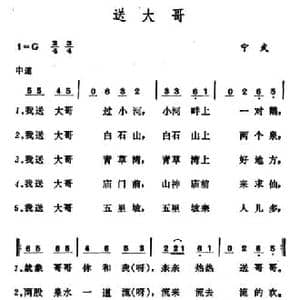 送大哥
1=G 2/4 3/4 宁武
中速
5 5 4 5 0 6 3 2 3 3 6 1 0 2 6 5
1.我送 大哥 过小河, 小河 畔上 一对鹅,
2.我送 大哥 白石山, 白石 山上 两个泉,
3.我送 大哥 青草湾, 青草 湾上 好地方,
4.我送 大哥 庙门前, 山神 庙前 来求仙,
5.我送 大哥 五里坡, 五里 坡来 人儿多,
5 5 4 5 0 6 3 2 2 2 1 6 1 0 2 6 5
1.就象 哥哥 你和 我(呀), 亲亲 热热 送哥哥。
2.两股 泉水 一道 流(呀), 流来 流去 流的欢。